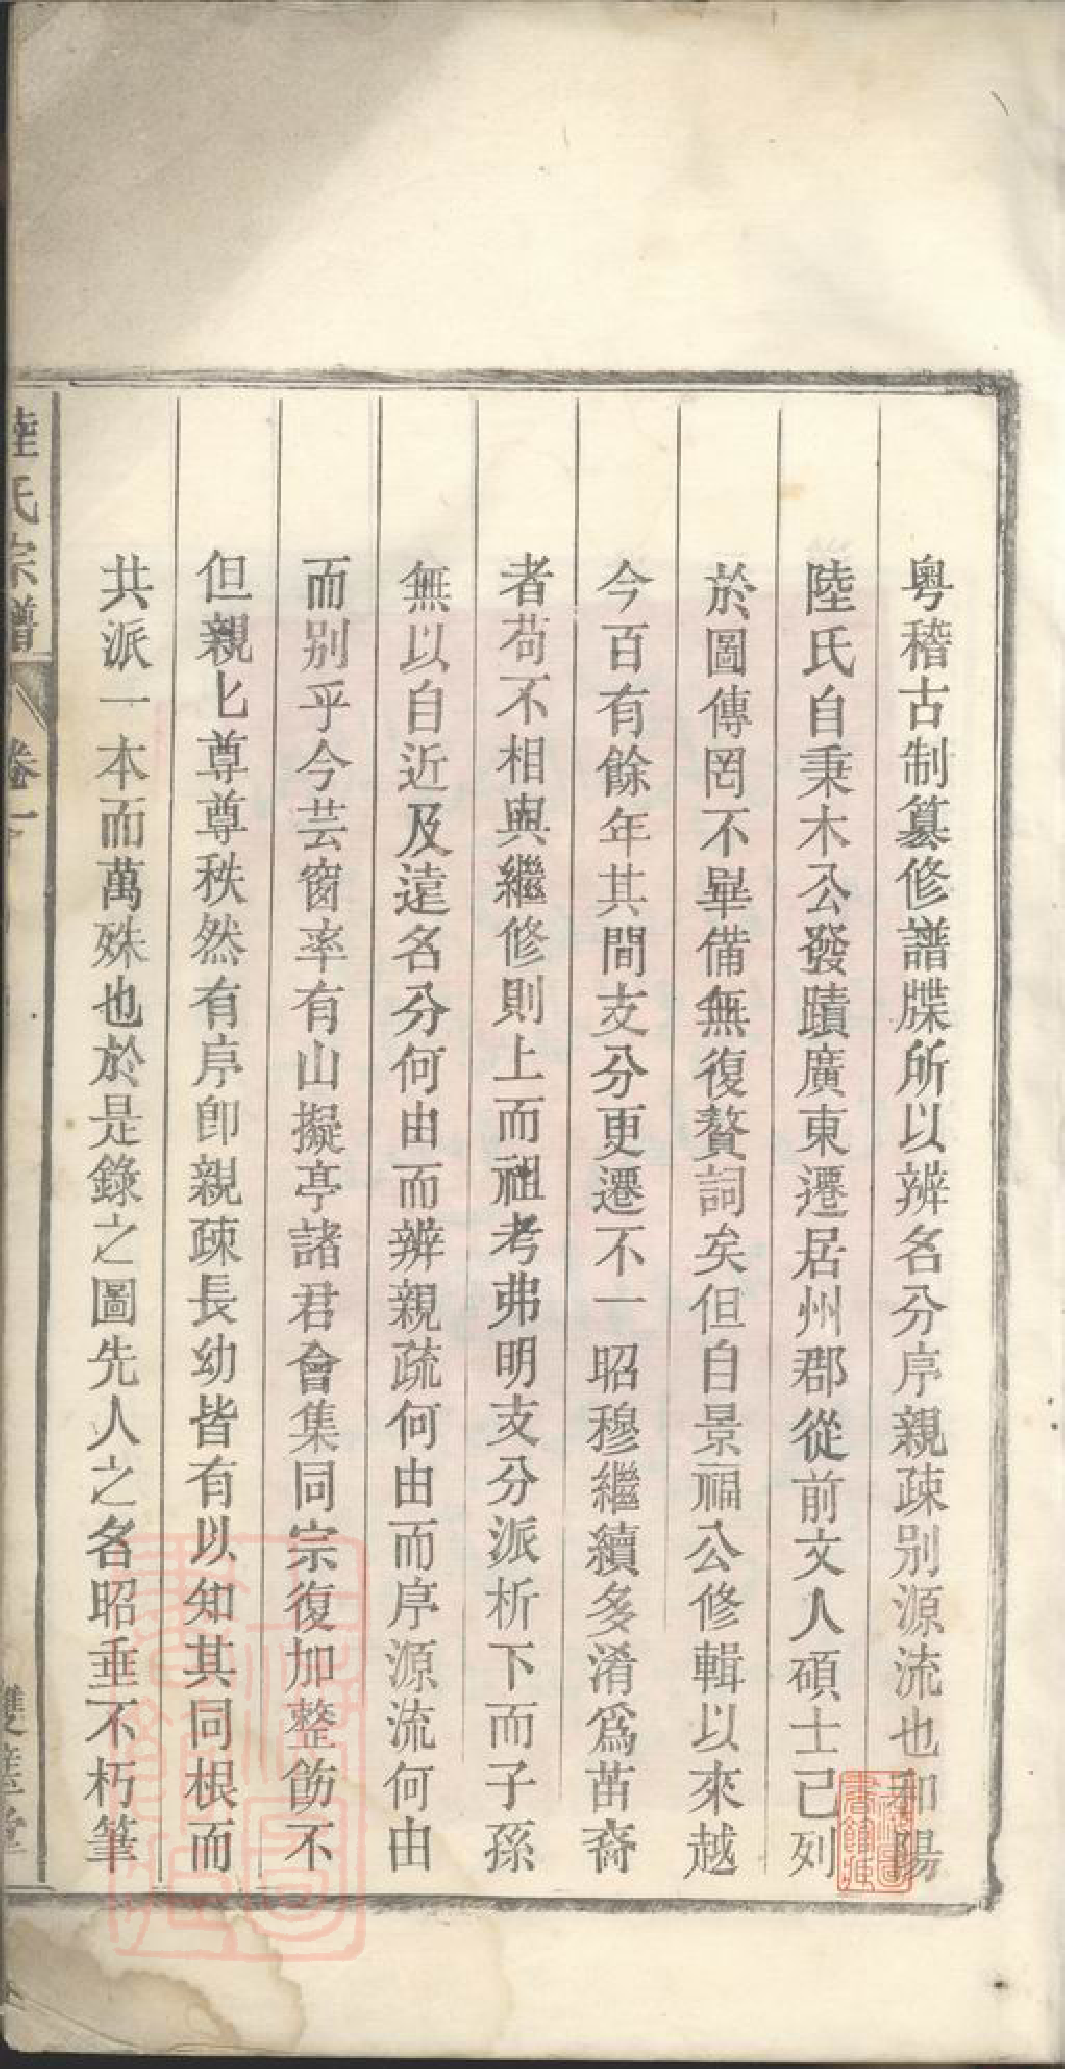 粵稽古制纂修譜牒所以辨名分序親疎别源流也和陽
陸氏自秉木公發蹟廣東遷居州郡從前文人碩士已列
於圖傳罔不畢備無復贅詞矣但自景福公修輯以來越
今百有餘年其間支分更遷不一昭穆繼續多淆爲苗裔
者苟不相與繼修則上而祖考弗明支分派析下而子孫
無以自近及遠名分何由而辨親疏何由而序源流何由
而别乎今芸窗率有山擬亭諸君會集同宗復加整飭不
但親匕尊尊秩然有序卽親疎長幼皆有以知其同根而
共派一本而萬殊也於是錄之圖先人之名昭垂不朽筆
陸氏宗譜 卷一 雙桂堂